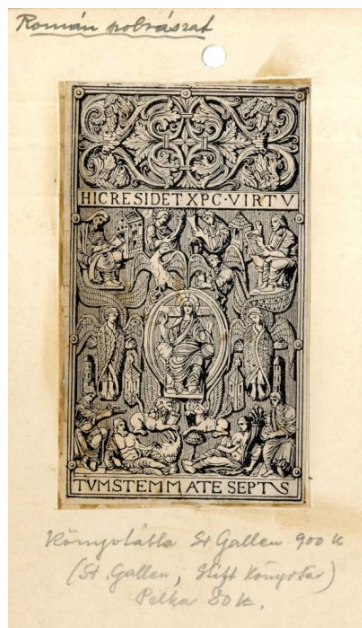 Román szobrászat
HICRESIDET XPC·VIRTV
TVMSTEMMATE SEPTVS
Könyvtábla St Gallen 900 k
(St. Gallen, Stift könyvtár)
Pelka 80 k.